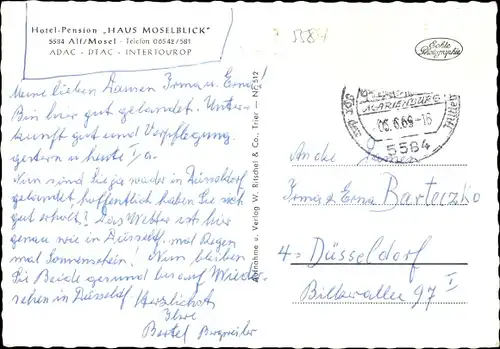 Hotel-Pension „HAUS MOSELBLICK"
5584 Alf/Mosel - Telefon 06542/581
ADAC - DTAC - INTERTOUROP
5584
Echte Photographie
Meine lieben Damen Irma u. Erna
Bin hier gut gelandet. Unter-
kunft gut und Verpflegung
gestern u heute Ia.
Nun sind Sie ja wieder in Düsseldorf
gelandet hoffentlich haben Sie sich
gut erholt? Das Wetter ist hier
genau wie in Düsseld. mal Regen
mal Sonnenschein! Nun bleiben
Sie Beide gesund bis auf Wieder-
sehen in Düsseldf
Herzlichst
Ihre
Bertel Bergweiler
Aufnahme u. Verlag W. Ritschel & Co., Trier — Nr. 512
MARIENBURG
-6.6.69-16
5584
An die Damen
Irma u Erna Barteczko
4 = Düsseldorf
Bilkerallee 97 I